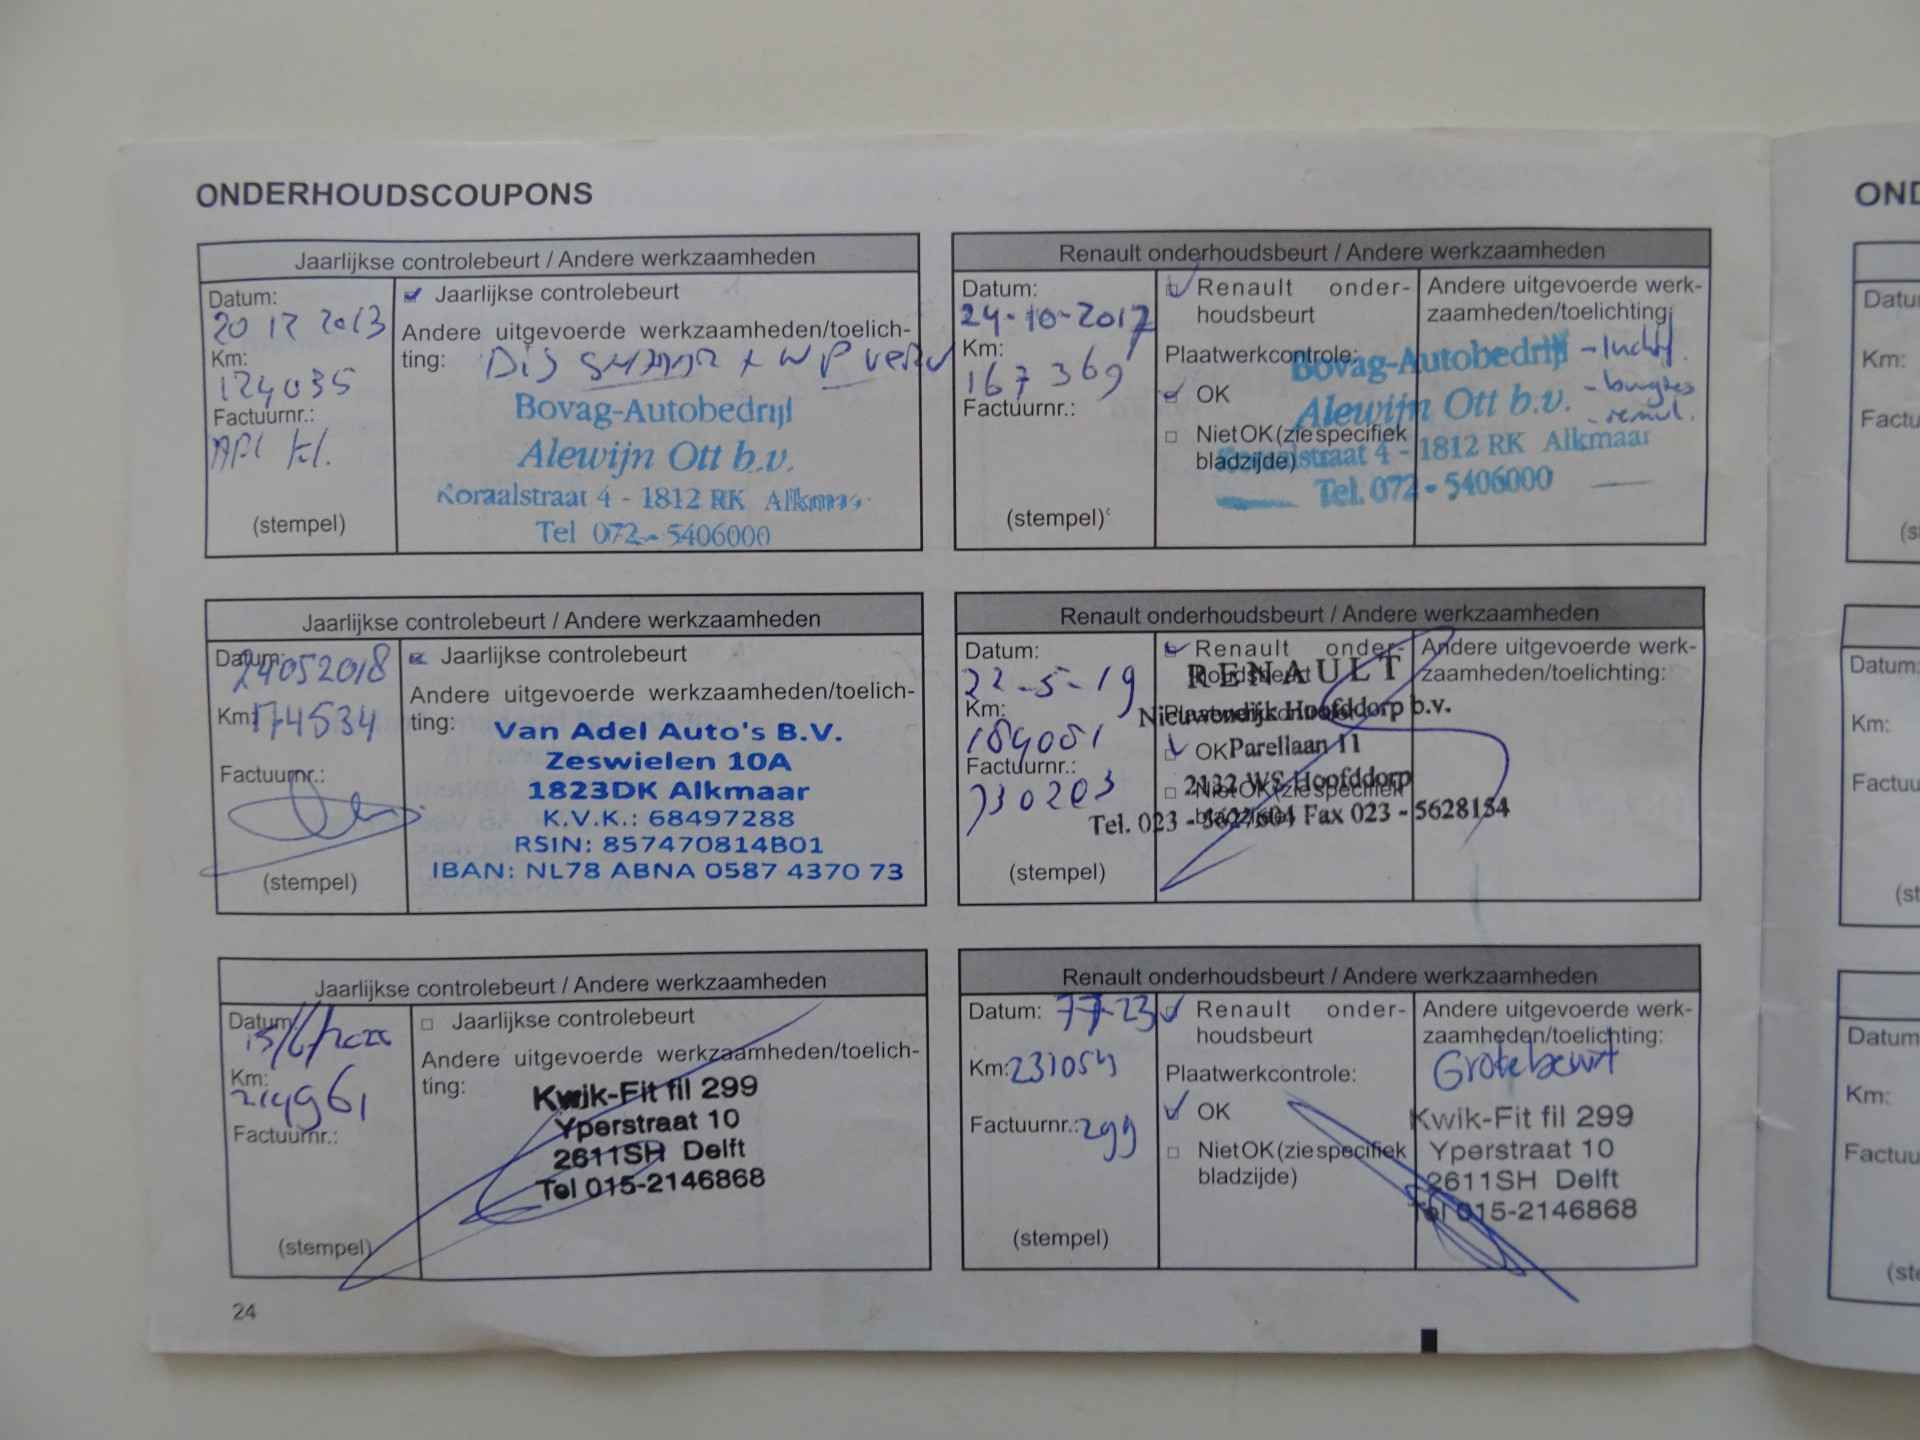 ONDERHOUDSCOUPONS
Jaarlijkse controlebeurt / Andere werkzaamheden
Datum:
20 12 2013
Km:
124035
Factuurnr.:
APL kl.
(stempel)
Jaarlijkse controlebeurt
Andere uitgevoerde werkzaamheden/toelich-
ting: Dis + WP
Bovag-Autobedrijf
Alewijn Ott b.v.
Koraalstraat 4 - 1812 RK Alkmaar
Tel 072 - 5406000
Renault onderhoudsbeurt / Andere werkzaamheden
Datum:
24-10-2017
Km:
167369
Factuurnr.:
(stempel)
Renault onder-
houdsbeurt
Plaatwerkcontrole:
OK
Niet OK (zie specifiek
bladzijde)
Andere uitgevoerde werk-
zaamheden/toelichting:
- Luchtf.
- bougies
- remvl.
Bovag-Autobedrijf
Alewijn Ott b.v.
Koraalstraat 4 - 1812 RK Alkmaar
Tel. 072 - 5406000
Jaarlijkse controlebeurt / Andere werkzaamheden
Datum:
24052018
Km:
174534
Factuurnr.:
(stempel)
Jaarlijkse controlebeurt
Andere uitgevoerde werkzaamheden/toelich-
ting:
Van Adel Auto's B.V.
Zeswielen 10A
1823DK Alkmaar
K.V.K.: 68497288
RSIN: 857470814B01
IBAN: NL78 ABNA 0587 4370 73
Renault onderhoudsbeurt / Andere werkzaamheden
Datum:
22-5-19
Km:
189051
Factuurnr.:
730203
(stempel)
Renault onder-
houdsbeurt
Plaatwerkcontrole:
OK
Niet OK (zie specifiek
bladzijde)
Andere uitgevoerde werk-
zaamheden/toelichting:
RENAULT
Nieuwendijk Hoofddorp b.v.
Parellaan 11
2132 WS Hoofddorp
Tel. 023 - 5627604 Fax 023 - 5628154
Jaarlijkse controlebeurt / Andere werkzaamheden
Datum:
15/6/2020
Km:
214961
Factuurnr.:
(stempel)
Jaarlijkse controlebeurt
Andere uitgevoerde werkzaamheden/toelich-
ting:
Kwik-Fit fil 299
Yperstraat 10
2611SH Delft
Tel 015-2146868
Renault onderhoudsbeurt / Andere werkzaamheden
Datum: 77-23
Km: 231054
Factuurnr.: 299
(stempel)
Renault onder-
houdsbeurt
Plaatwerkcontrole:
OK
Niet OK (zie specifiek
bladzijde)
Andere uitgevoerde werk-
zaamheden/toelichting:
Grote beurt
Kwik-Fit fil 299
Yperstraat 10
2611SH Delft
Tel 015-2146868
24
OND
Datu
Km:
Factu
(s
Datum:
Km:
Factuu
(st
Datum
Km:
Factuu
(ste